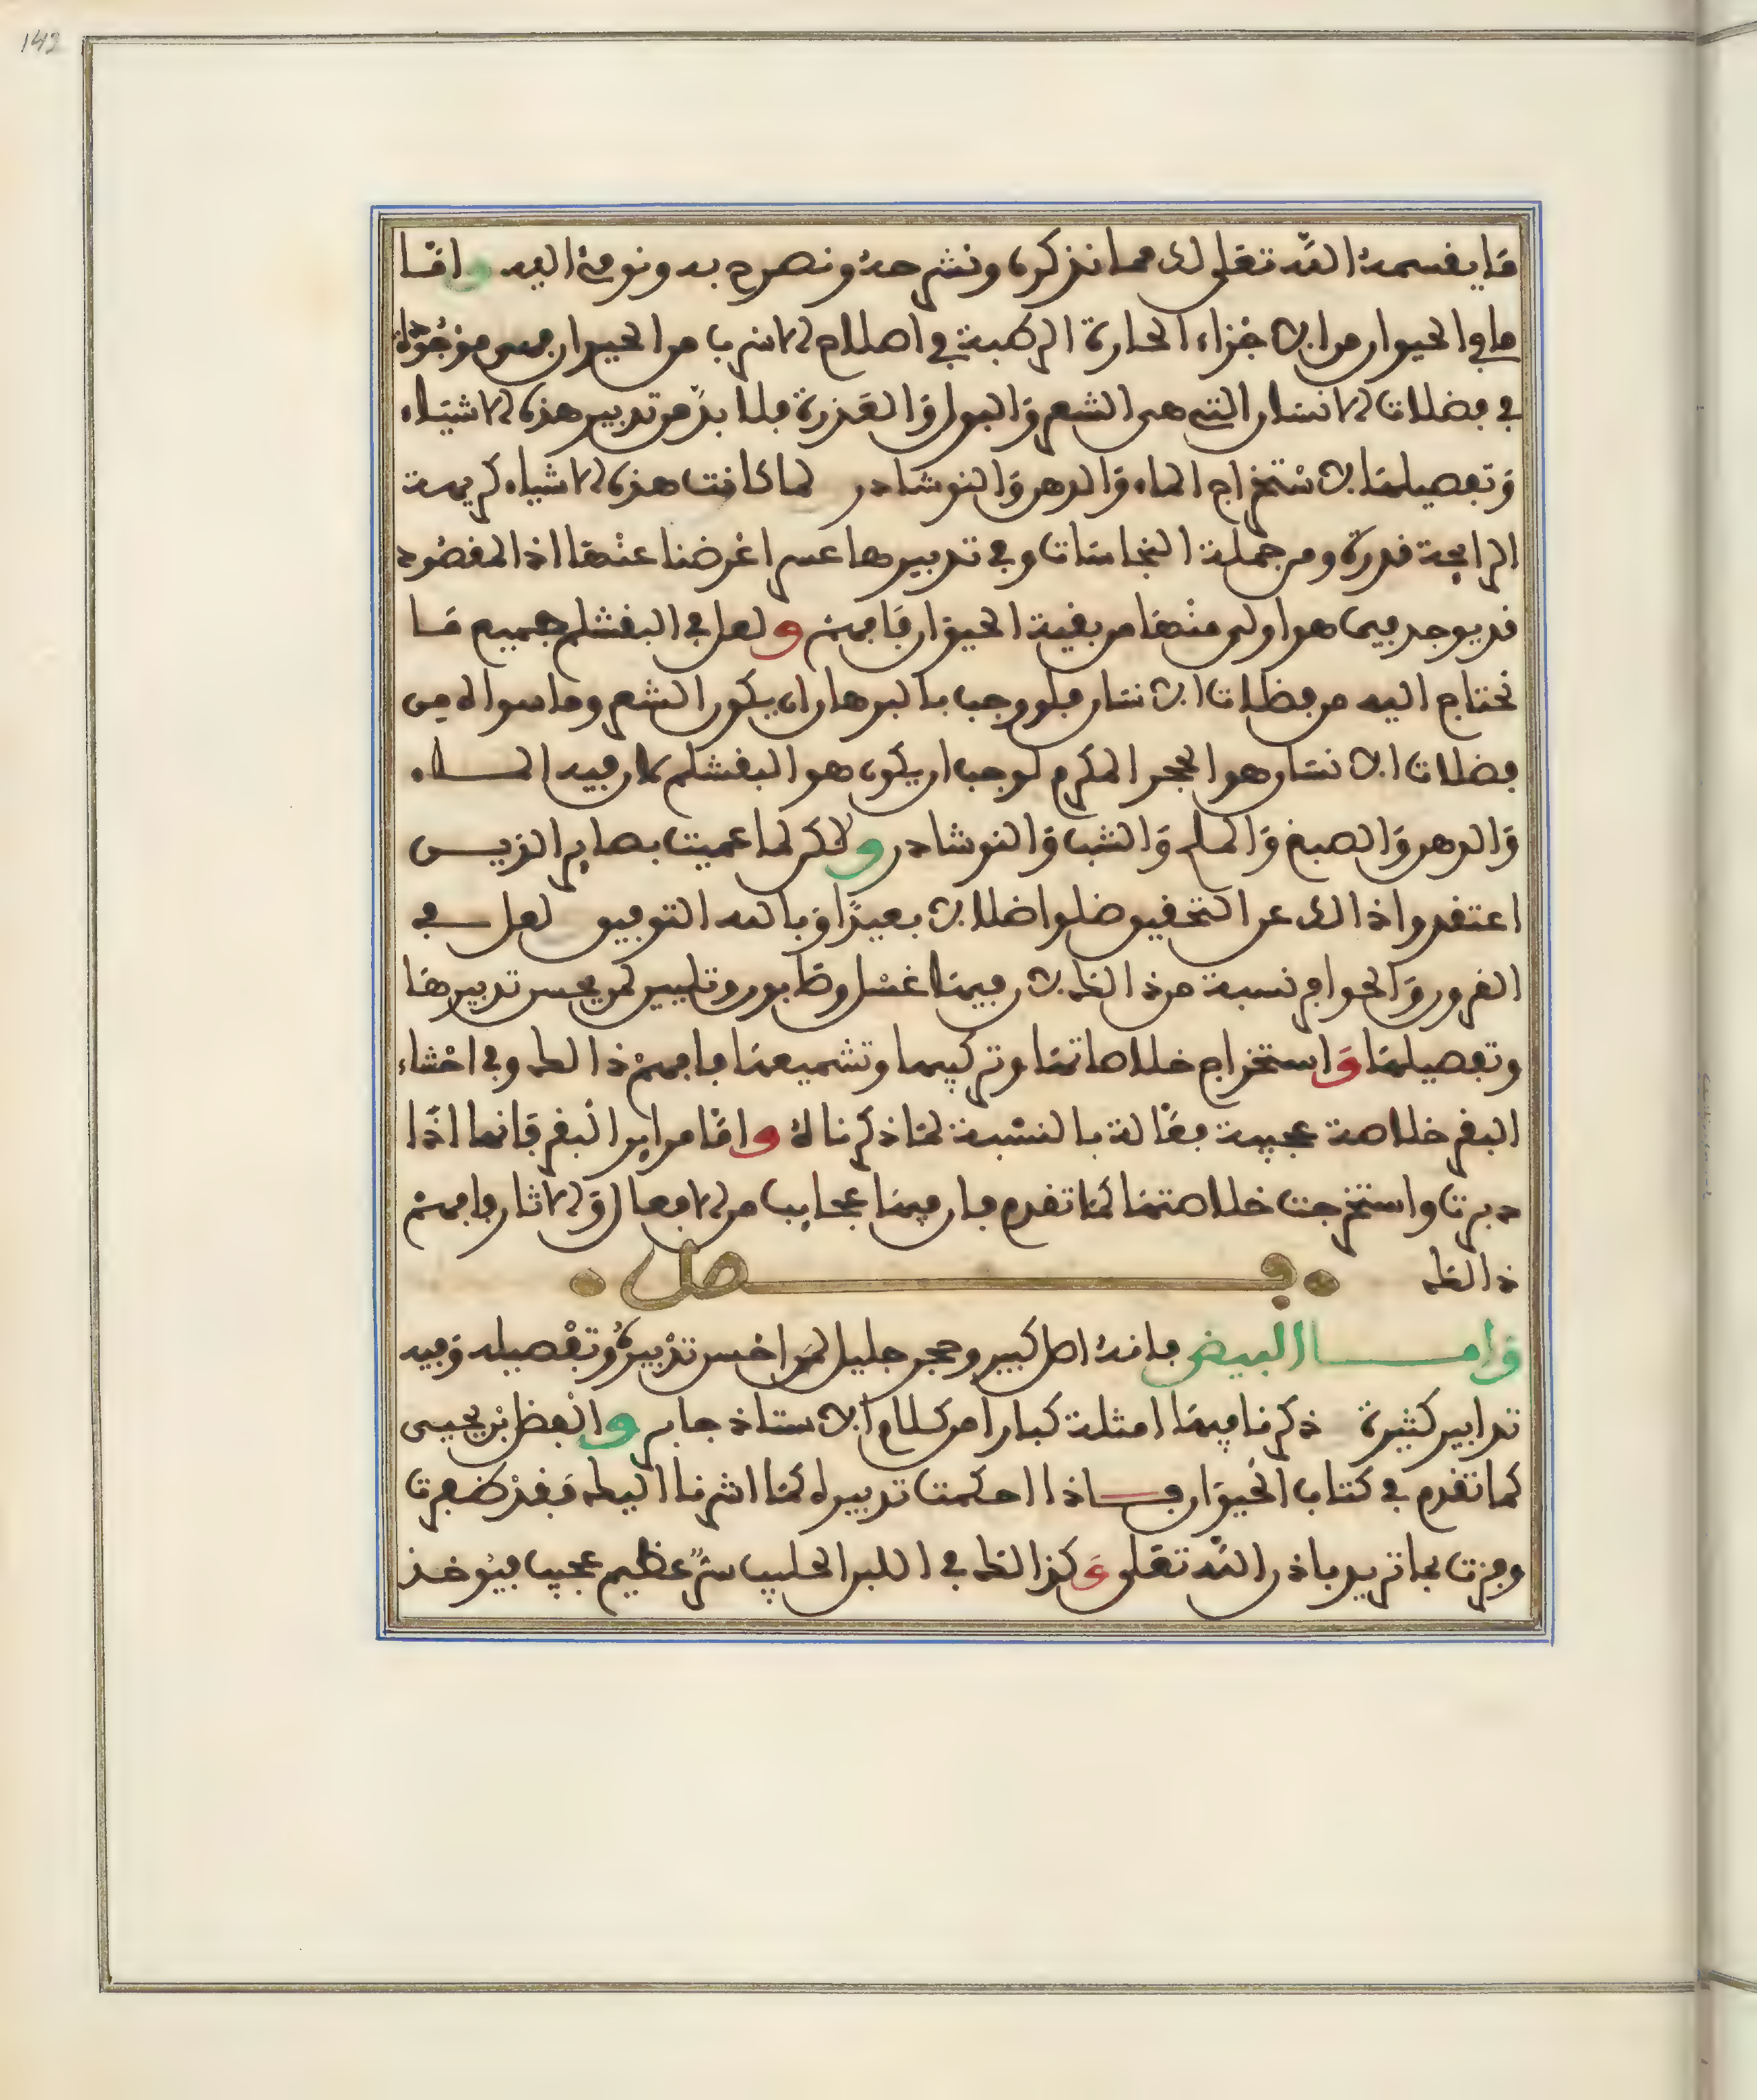 142
ما يقسمه الله تعلى لك مما نذكره ونشرحه ونصرح به ونومئ اليه واما
ما في الحيوان من الاجزاء الحارة الرطبة في اصلاح الاسرب من الحيوان فهي موجودة
في فضلات الانسان التي هي الشعر والبول والعذرة فلا بد من تدبير هذه الاشياء
وتفصيلها لاستخراج الماء والدهن والنوشادر لما كانت هذه الاشياء كريهة
الرايحة قدرة ومن جملة النجاسات وفي تدبيرها عسر اعرضنا عنها اذ المقصود
قد يوجد فيما هو اولى منها من بقية الحيوان فافهم ولعل في البقشلم جميع ما
نحتاج اليه من فظلات الانسان فلو وجب بالبرهان ان يكون الشعر وما سواه من
فضلات الانسان هو الحجر المكرم لوجب ان يكون هو البقشلم لان فيه المــاء
والدهن والصبغ والملح والشب والنوشادر ولكن لما عميت بصاير الذيــن
اعتقدوا ذالك عن التحقيق ضلوا ضلالا بعيدا وبالله التوفيق لعل في
القرون والحوافر نسبة من ذالك لان فيها غسل وطابون وتليين لمن يحسن تدبيرها
وتفصيلها واستخراج خلاصاتها وتركيبها وتشميعها فافهم ذالك وفي اخشاء
البقر خلاصة عجيبة فعالة بالنسبة لما ذكرناه واما مراير البقر فانها اذا
دبرت واستخرجت خلاصتها كما تقدم فان فيها عجايب من الافعال والاثار فافهم
ذالك فــصل
وامــا البيض فانه اصل كبير وحجر جليل لمن احسن تدبيره وتفصيله وفيه
تدابير كثيرة ذكرنا فيها امثلة كبارا من كلام الاستاذ جابر والفظل بن يحيى
كما تقدم في كتاب الحيوان فــاذا احكمت تدبيره كما اشرنا اليك فقد ظفرت
وفزت بما تريد باذن الله تعلى وكذالك في اللبن الحليب سر عظيم عجيب فيوخذ